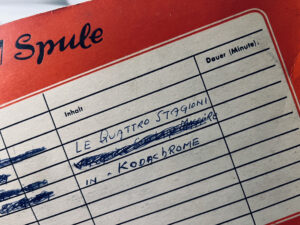 Spule
Inhalt
Dauer (Minute).
LE QUATTRO STAGIONI
IN - KODACHROME